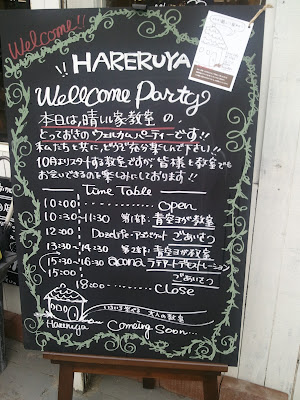 Welcome!!
!! HARERUYA
Wellcome Party
本日は、晴れる家教室の、
とっておきのウェルカムパーティーです!!
私たちと共に、どうぞ存分楽しんで下さい!!
10月よりスタートする教室ですが、皆様と教室でも
お会いできるのを楽しみにしております!!
Time Table
10:00 Open
10:30~11:30 第1部:青空ヨガ教室
12:00 ごあいさつ
13:30~14:30 第2部:青空ヨガ教室
15:30~16:30 ラテアートデモストレーション
15:00 ごあいさつ
18:00 close
大人の教室
Hareruya Coming Soon...